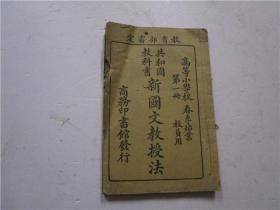 教育部審定
高等小學校 春季始業
第一冊 教員用
共和國教科書
新國文教授法
商務印書館發行